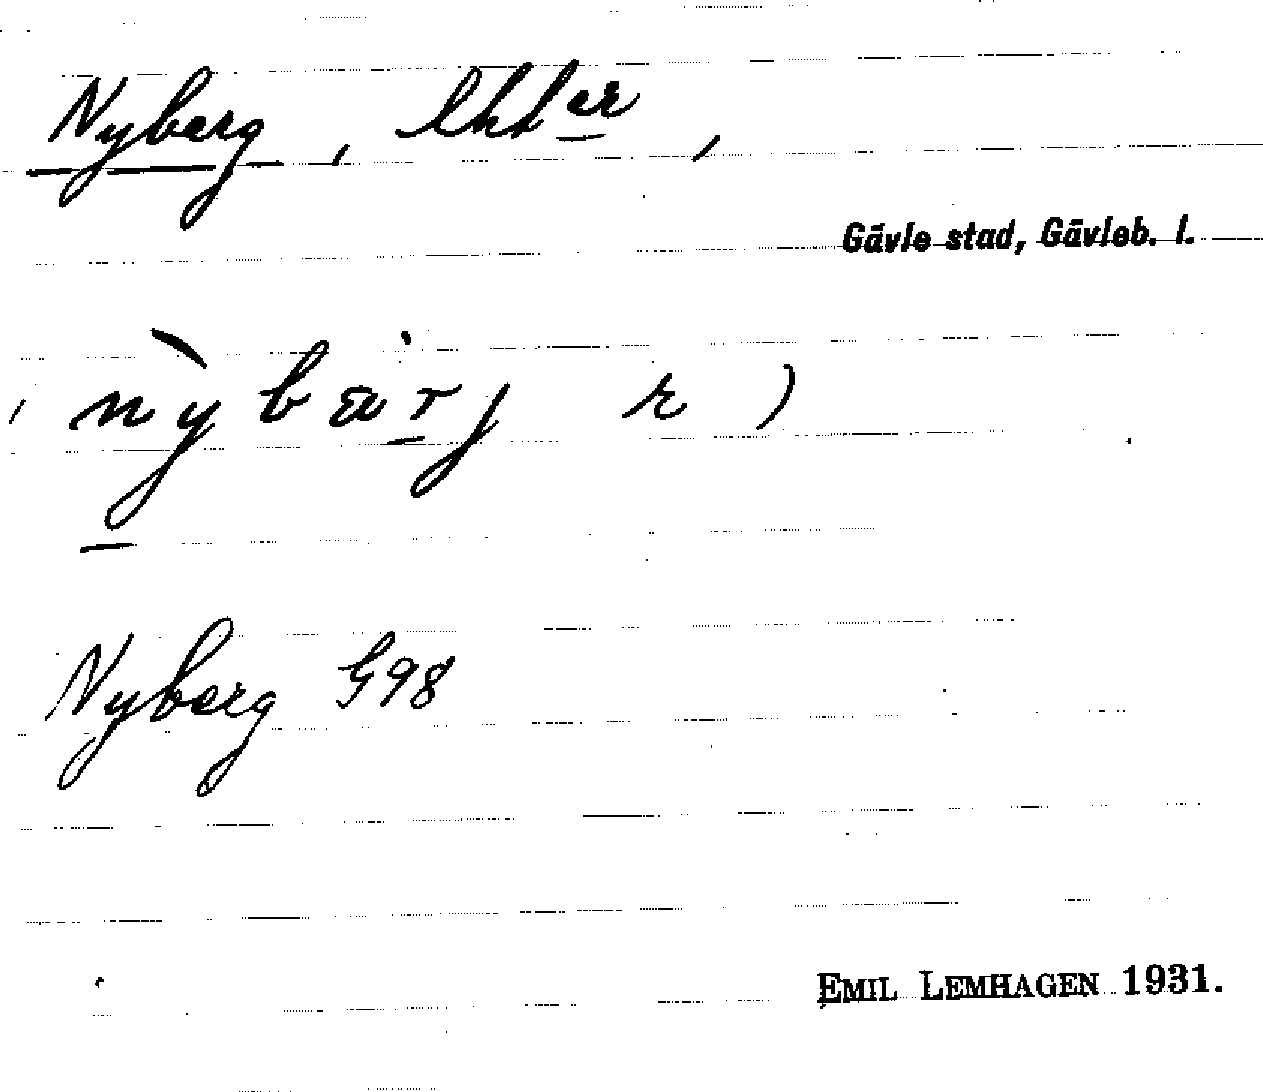 Nyberg, lht er,
Gävle stad, Gävleb. l.
(nỳbær̲j r)
Nyberg G98
EMIL LEMHAGEN 1931.